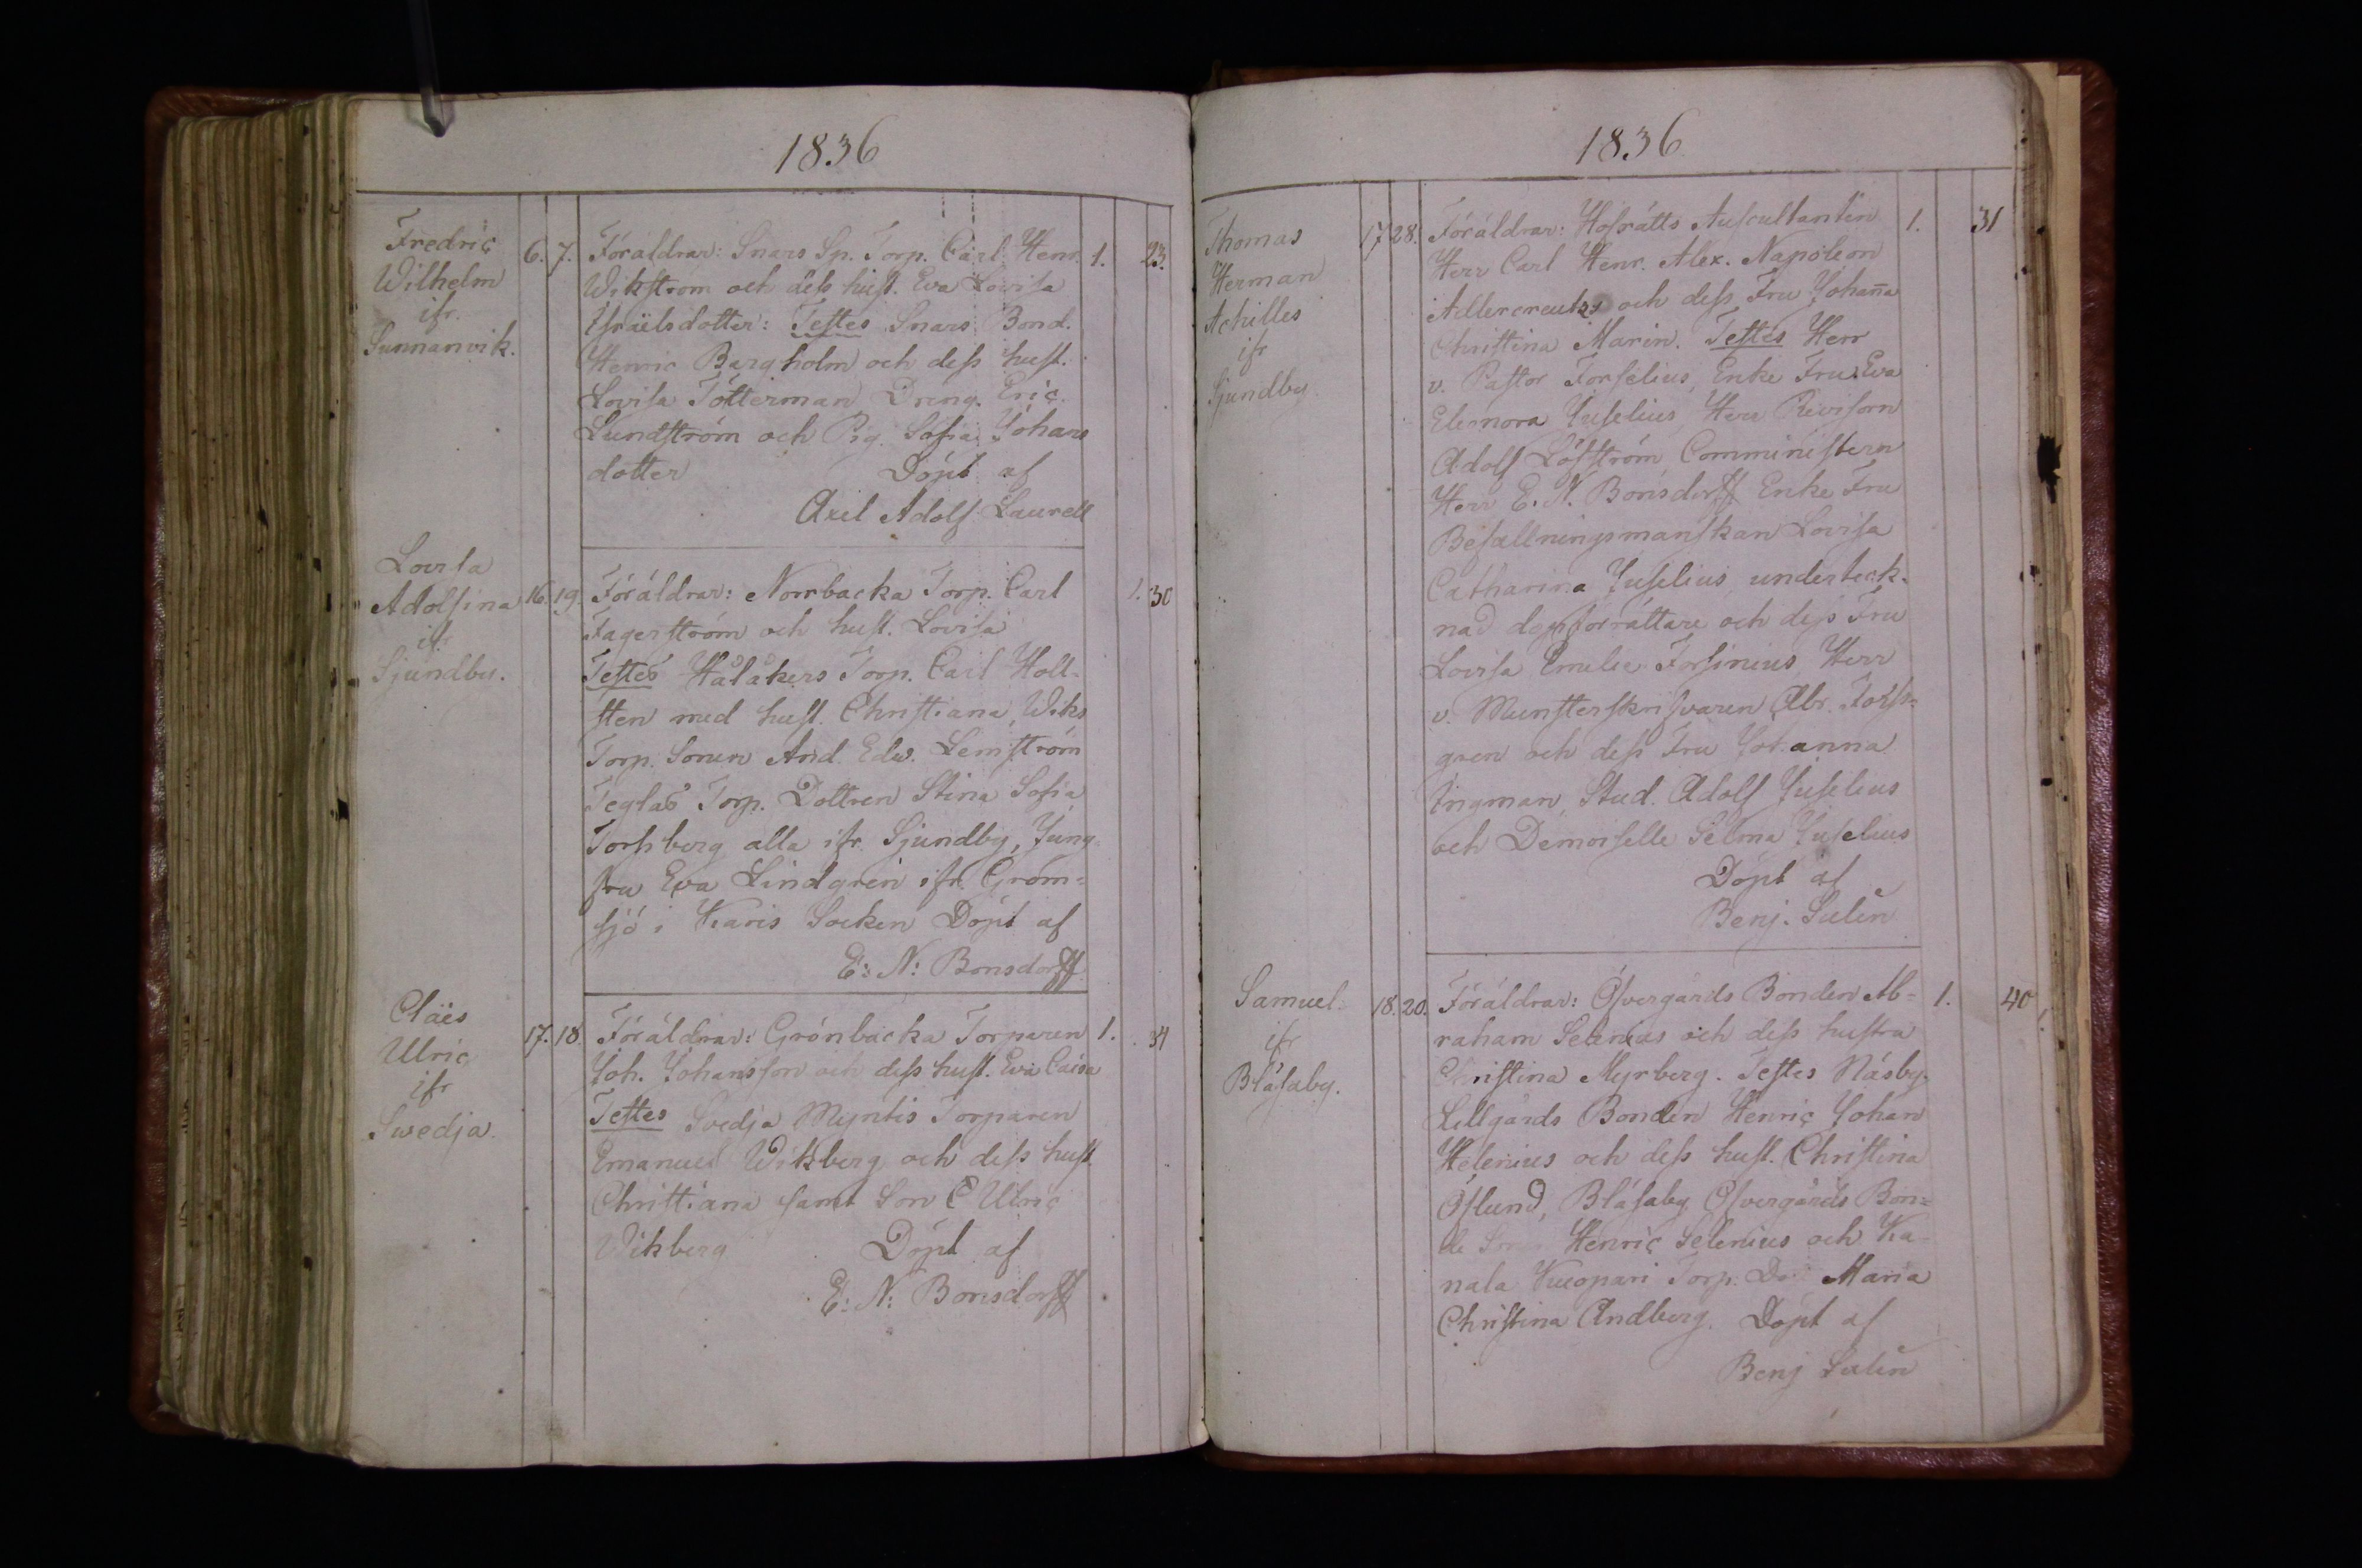 1836
Fredric
Wilhelm
ifr.
Sunnanvik.
6. 7.
Föräldrar: Snars Sp. Torp. Carl Henr.
Wikström och dess hust. Eva Lovisa
Israëlsdotter: Testes Snars Bond.
Henric Bargholm och dess hust.
Lovisa Tötterman Dreng. Eric
Lundström och Pig. Sofia Johans
dotter Döpt af
Axel Adolf Laurell
1. 23.
Lovisa
Adolfina
ifr
Sjundby.
16. 19.
Föräldrar: Norrbacka Torp. Carl
Fagerström och hust. Lovisa
Testes Hålåkers Torp. Carl Holl-
sten med hust. Christiana, Wiks
Torp. Sonen And. Edw. Lemström
Teglas Torp. Dottren Stina Sofia
Torsberg alla ifr. Sjundby, Jung
fru Eva Lindgren ifr. Gröm=
sjö i Karis Socken Döpt af
E: N: Bonsdorff
1. 30
Claës
Ulric
ifr
Swedja.
17. 18.
Föräldrar: Grönbacka Torparen
Joh. Johansson och dess hust. Eva Caisa
Testes Svedja Myntis Torparen
Emanuel Wikberg och dess hust
Christiana samt Son C Ulric
Wikberg Döpt af
E: N: Bonsdorff
1. 34
1836
Thomas
Herman
Achilles
ifr
Sjundby.
17 28.
Föräldrar: Hofrätts Auscultanten
Herr Carl Henr. Alex. Napoleon
Adlercreutz och dess Fru Johan̄a
Christina Marin. Testes Herr
v. Pastor Forselius, Enke Fru Eva
Elemora Juselius, Herr Revisorn
Adolf Löfström Comministern
Herr E. N. Bonsdorff Enke Fru
Befallningsmanskan Lovisa
Catharina Juselius underteck-
nad dopförrättare och dess Fru
Lovisa Emelie Forsinius, Herr
v. Munsterskrifvaren Abr.
gren och dess Fru Johanna
Ingman, Stud. Adolf Juselius
och Demoiselle Selma Juselius
Döpt af
Benj. Salén
1. 31
Samuel
ifr
Bläsaby.
18. 20.
Föräldrar: Öfvergårds Bonden Ab=
raham Selenius och dess hustru
Christina Myrberg. Testes Näsby
Lillgårds Bonden Henric Johan
Helenius och dess hust. Christina
Öslund, Bläsaby Öfvergårds Bon=
de Henric Selenius och Ka
nala Kuopari Torp. Dr Maria
Christina Andberg. Döpt af
Benj Salén
1. 40